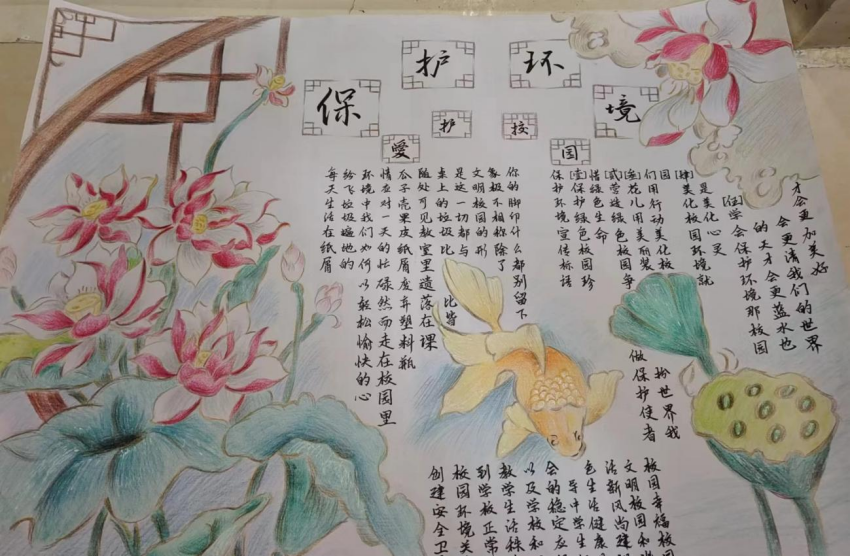 保护环境
愛护校园
每天生活在纸屑
纷飞垃圾遍地的
环境中我们如何以轻松愉快的心
情应对一天的忙碌然而走在校园里
瓜子壳果皮纸屑废弃塑料瓶
随处可见教室里遗落在课
桌上的垃圾比比皆
是这一切都与
文明校园的形
象极不相称除了
你的脚印什么都别留下
保护环境宣传标语
[壹]保护绿色校园珍
惜绿色生命
[贰]营造绿色校园争做保护使者
[叁]花儿用美丽装扮世界我
们用行动美化校
园
[肆]美化校园环境就
是美化心灵
[伍]学会保护环境那校园
的天才会更蓝水也
会更清我们的世界
才会更加美好
创建安全卫
校园环境关
到学校正常
教学生活秩
以及学校和
会的稳定应
导中学生
色生活健康
活新风尚建
文明校园和
校园幸福校